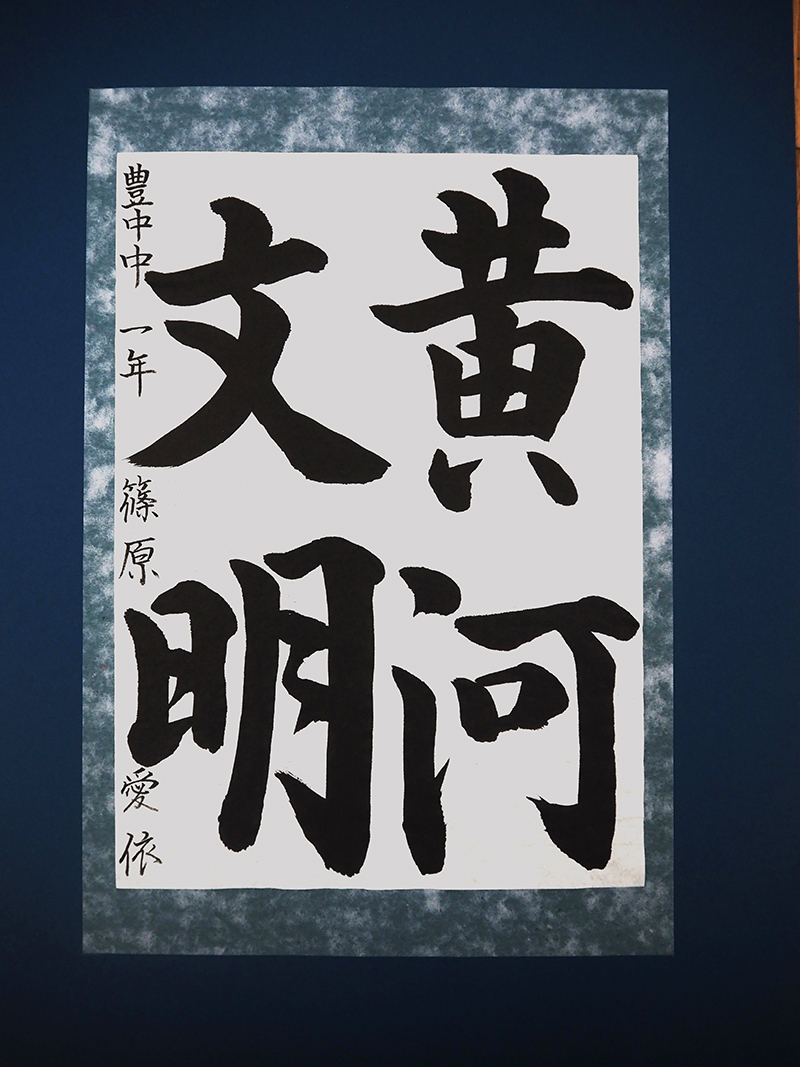 黄河
文明
豊中中 一年 篠原 愛依